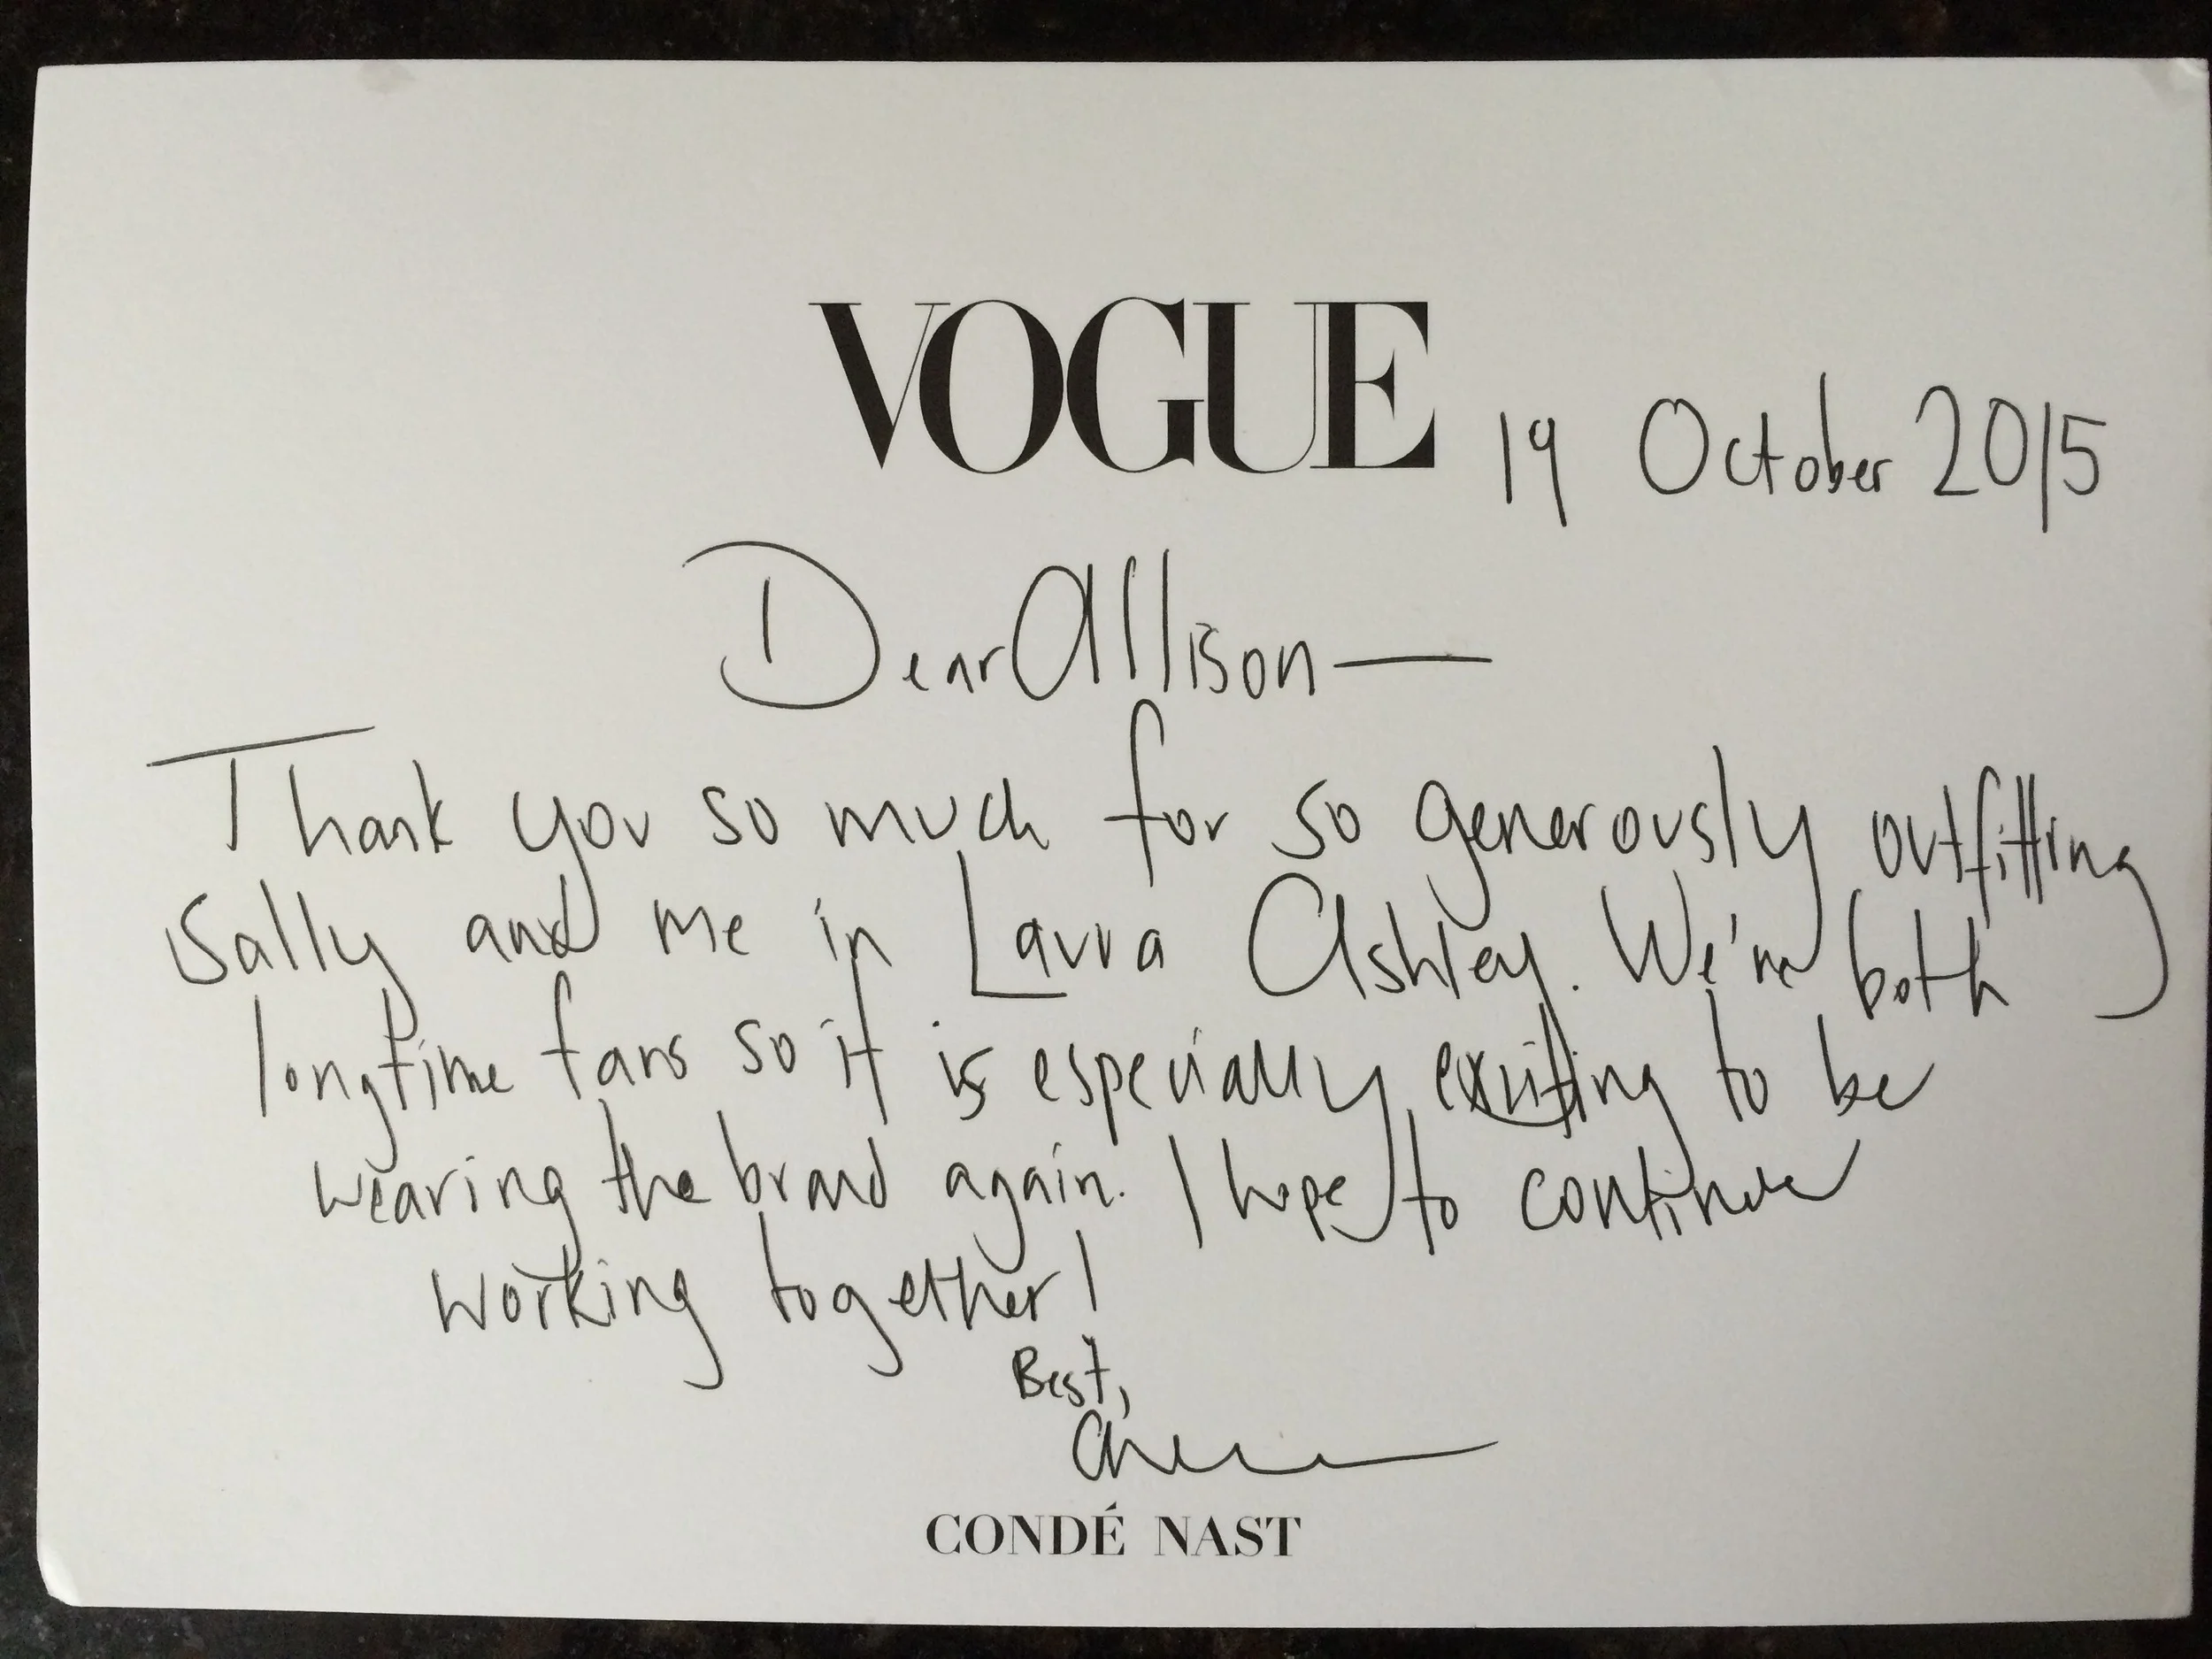 VOGUE
19 October 2015
Dear Allison—
Thank you so much for so generously outfitting
Sally and me in Laura Ashley. We're both
longtime fans so it is especially exciting to be
wearing the brand again. I hope to continue
working together!
Best,
CONDÉ NAST